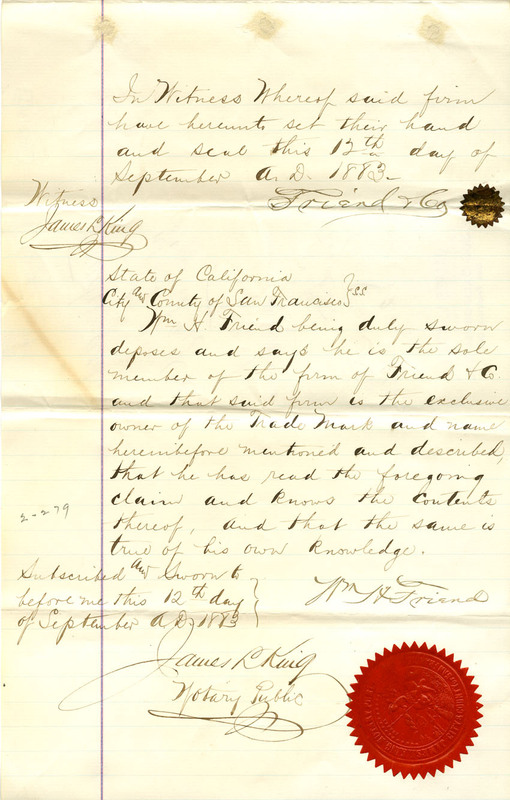 In Witness Whereof said firm
have hereunto set their hand
and seal this 12th day of
September A.D. 1883-
Witness
James R King
Friend & Co
State of California
City and County of San Francisco } SS
Wm H. Friend being duly sworn
deposes and says he is the sole
member of the firm of Friend & C.
and that said firm is the exclusive
owner of the Trade Mark and name
hereinbefore mentioned and described,
that he has read the foregoing
claim and knows the contents
thereof, and that the same is
true of his own knowledge.
2-279
Subscribed and Sworn to
before me this 12th day
of September A.D. 1883
Wm H Friend
James R King
Notary Public